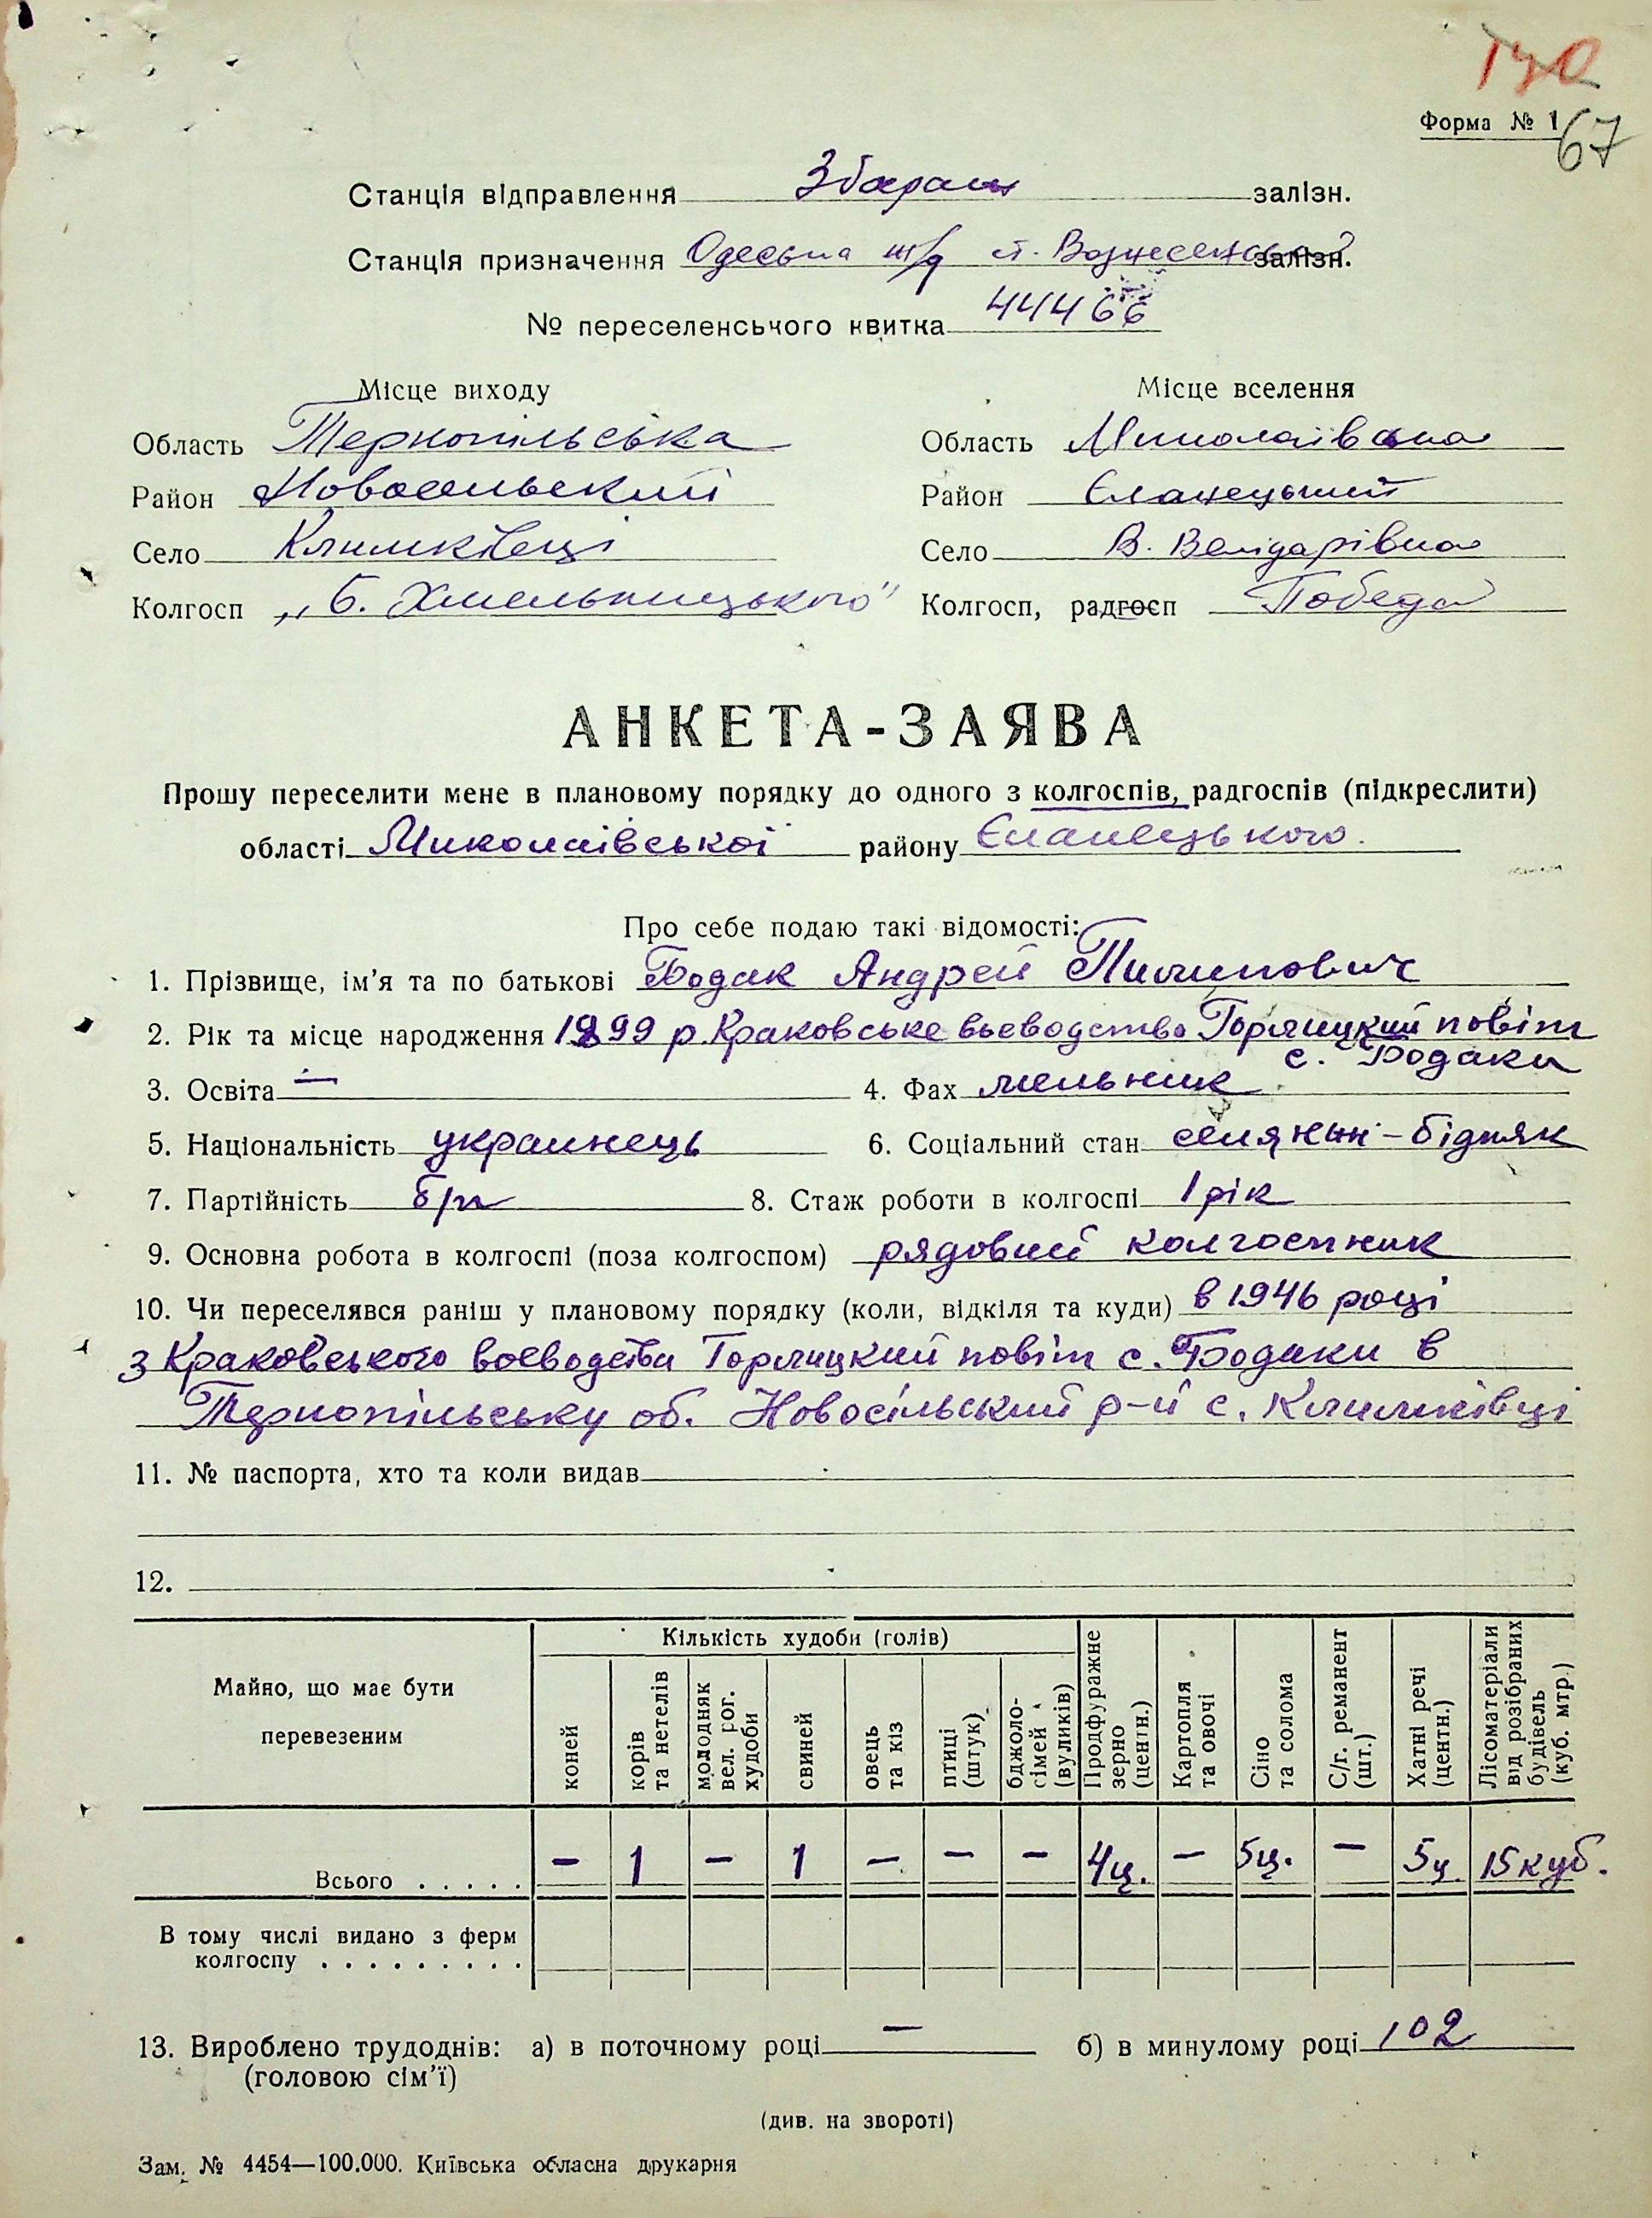 Форма № 1
67
Станція відправлення Збараж залізн.
Станція призначення Одеська ж/д ст. Вознесенськ залізн.
№ переселенського квитка 44466
Місце виходу
Місце вселення
Область Тернопільська
Область Миколаївська
Район Новосельский
Район Єланецький
Село Климківці
Село В.
Колгосп „Б. Хмельницького"
Колгосп, радгосп Победа
АНКЕТА-ЗАЯВА
Прошу переселити мене в плановому порядку до одного з колгоспів, радгоспів (підкреслити)
області Миколаївської району Єланецького.
Про себе подаю такі відомості:
1. Прізвище, ім'я та по батькові Бодак Андрей Пилипович
2. Рік та місце народження 1899 р. Краковське вьеводство Горлицкий повіт
с. Бодаки
3. Освіта — 4. Фах мельник
5. Національність украинець 6. Соціальний стан селянин-бідняк
7. Партійність б/п 8. Стаж роботи в колгоспі 1 рік
9. Основна робота в колгоспі (поза колгоспом) рядовий колгоспник
10. Чи переселявся раніш у плановому порядку (коли, відкіля та куди) в 1946 році
з Краковського воєводства Горлицкий повіт с. Бодаки в
Тернопільську об. Новосільский р-й с. Климківці
11. № паспорта, хто та коли видав
12.
Майно, що має бути перевезеним
Кількість худоби (голів)
коней
корів та нетелів
молодняк вел. рог. худоби
свиней
овець та кіз
птиці (штук)
бджоло-сімей (вуликів)
Продфуражне зерно (центн.)
Картопля та овочі
Сіно та солома
С/г. реманент (шт.)
Хатні речі (центн.)
Лісоматеріали від розібраних будівель (куб. мтр.)
Всього . . . . . — 1 — 1 — — — 4ц. — 5ц. — 5ц. 15 куб.
В тому числі видано з ферм
колгоспу . . . . . . . . .
13. Вироблено трудоднів: а) в поточному році — б) в минулому році 102
(головою сім'ї)
(див. на звороті)
Зам. № 4454—100.000. Київська обласна друкарня